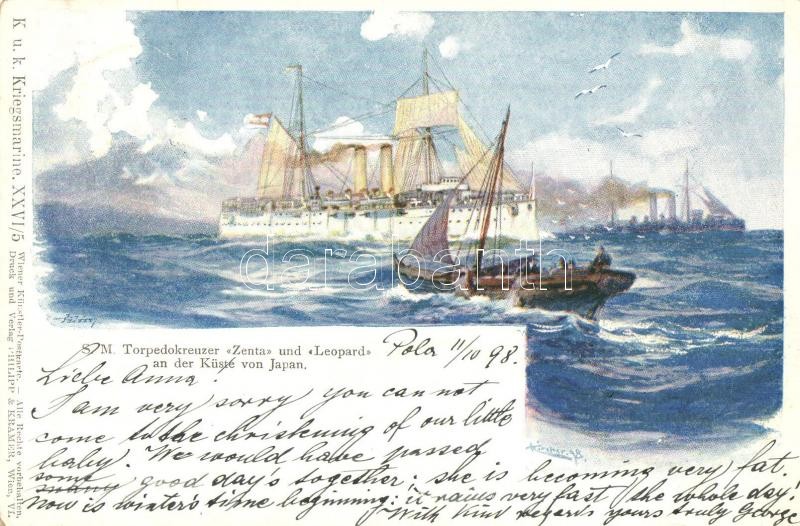 K. u. k. Kriegsmarine. XXVI/5
Wiener Künstler-Postkarte. – Alle Rechte vorbehalten.
Druck und Verlag PHILIPP & KRAMER, Wien, VI.
darabanth
S. M. Torpedokreuzer «Zenta» und «Leopard»
an der Küste von Japan.
Pola 11/10 98.
Liebe Anna!
I am very sorry you can not
come to the christening of our little
baby. We would have passed
some
many good day's together; she is becoming very fat.
Now is winter's time beginning: it rains very fast (the whole day!
With kind regards yours truly George